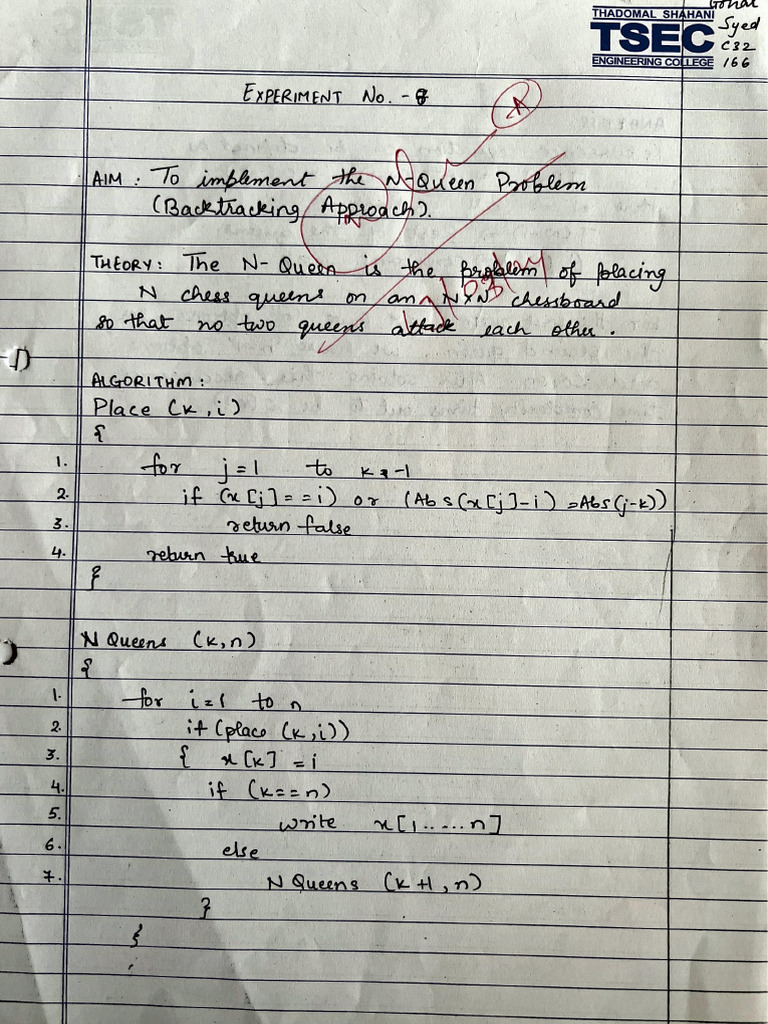 THADOMAL SHAHANI
TSEC
ENGINEERING COLLEGE
Gohar
Syed
C32
166
EXPERIMENT No. - 8
A
AIM : To implement the N-Queen Problem
(Backtracking Approach).
THEORY : The N-Queen is the problem of placing
N chess queens on an N×N chessboard
so that no two queens attack each other.
ALGORITHM :
Place (k, i)
{
1. for j=1 to k-1
2. if (x[j]==i) or (Abs(x[j]-i) =Abs(j-k))
3. return false
4. return true
}
N Queens (k,n)
{
1. for i=1 to n
2. if (place (k,i))
3. { x[k] = i
4. if (k==n)
5. write x[1.....n]
6. else
7. N Queens (k+1, n)
}
}